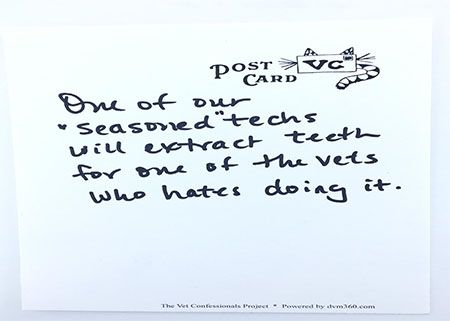 POST CARD VC
One of our
"seasoned" techs
will extract teeth
for one of the vets
who hates doing it.
The Vet Confessionals Project * Powered by dvm360.com